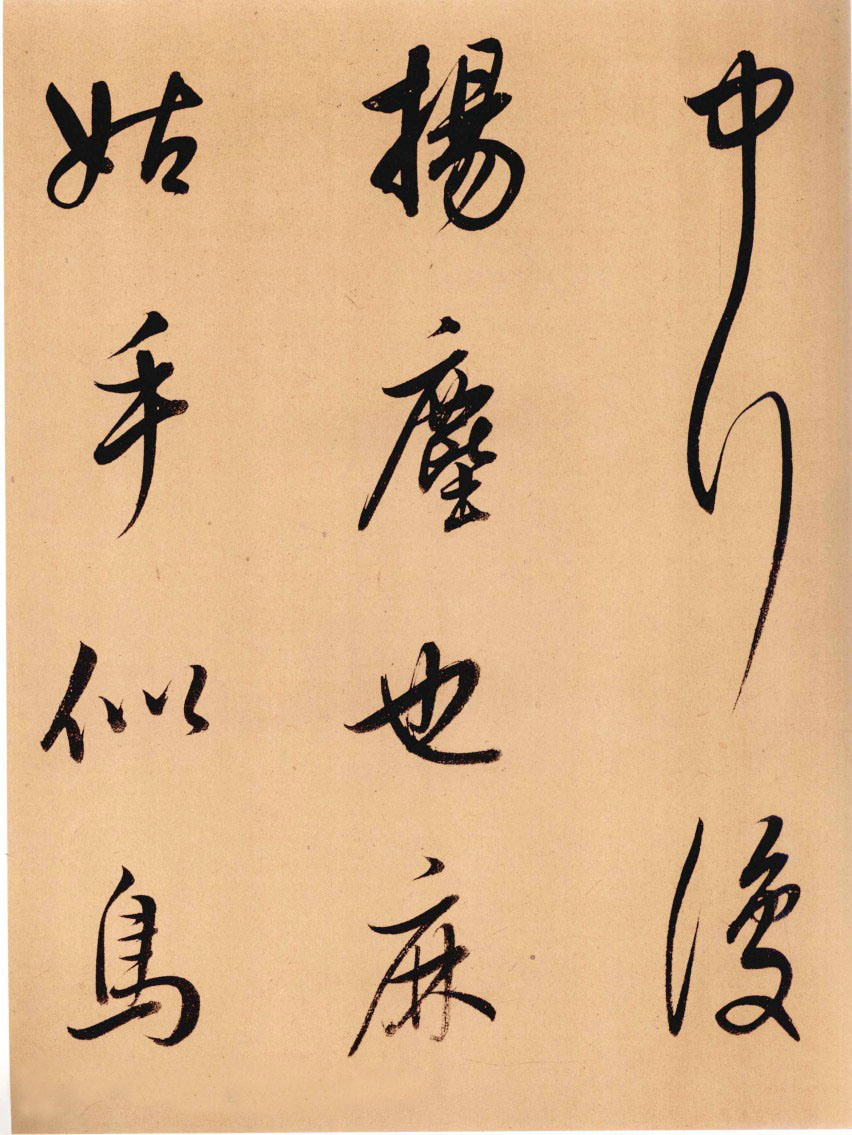 中行復
揚塵也麻
姑手似鳥